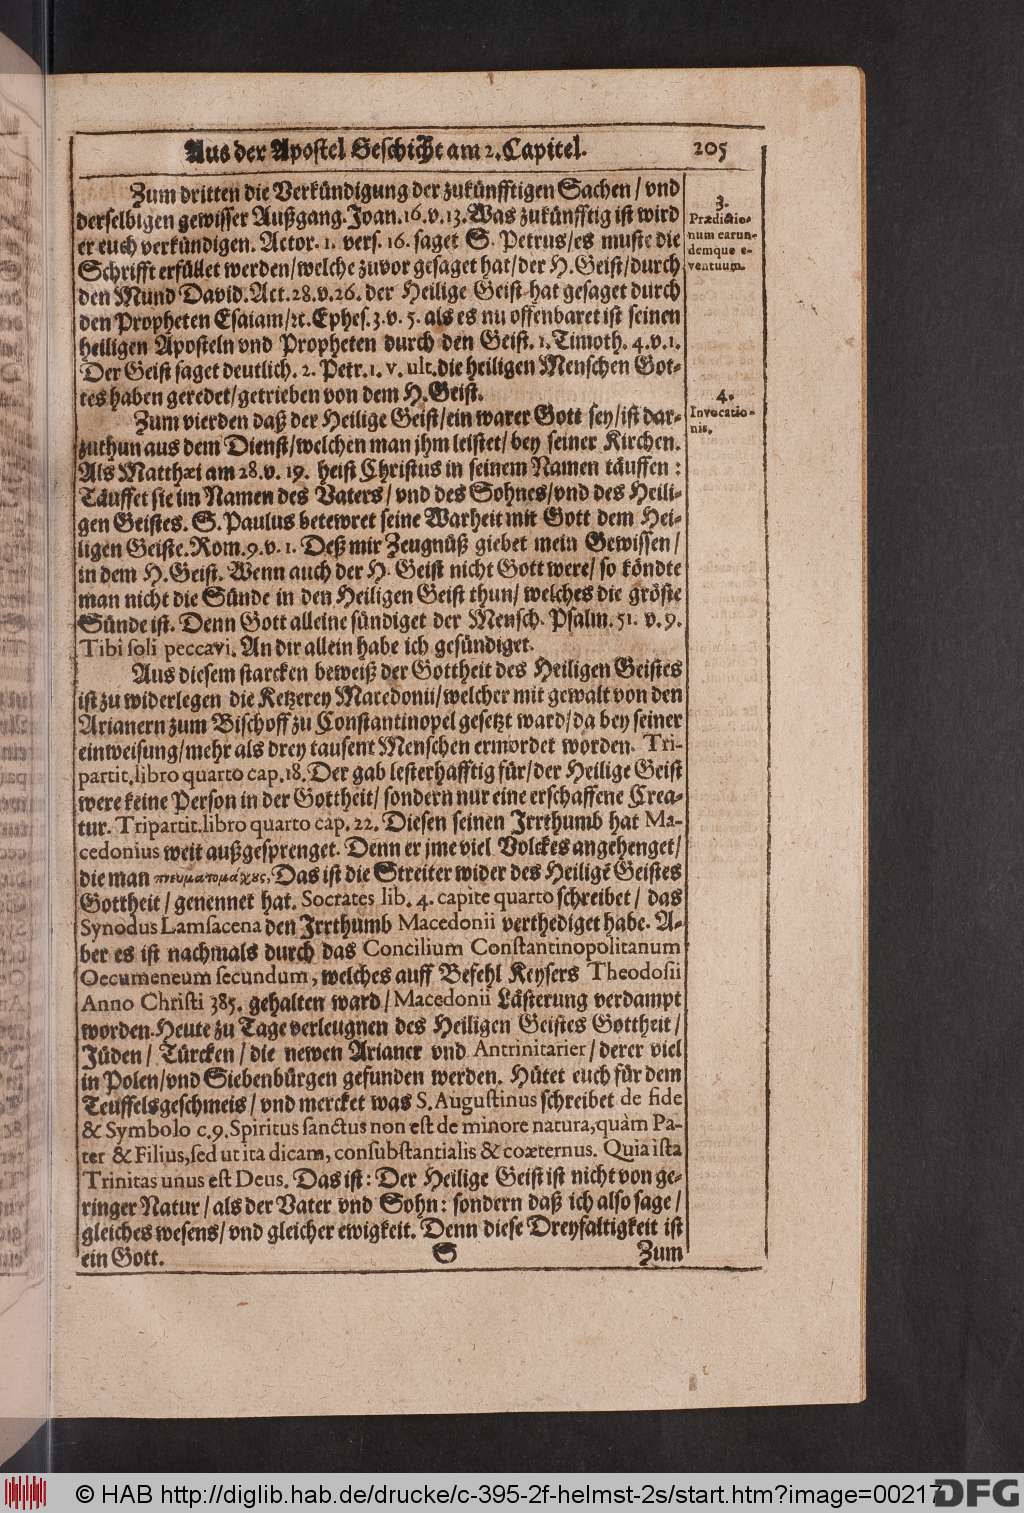 Aus der Apostel Geschicht am 2. Capitel. 205
Zum dritten die Verkündigung der zukünfftigen Sachen / vnd
derselbigen gewisser Außgang. Joan. 16. v. 13. Was zukünfftig ist wird
er euch verkündigen. Actor. 1. vers. 16. saget S. Petrus / es muste die
Schrifft erfüllet werden / welche zuvor gesaget hat / der H. Geist / durch
den Mund David. Act. 28. v. 26. der Heilige Geist hat gesaget durch
den Propheten Esaiam / ꝛc. Ephes. 3. v. 5. als es nu offenbaret ist seinen
heiligen Aposteln vnd Propheten durch den Geist. 1. Timoth. 4. v. 1.
Der Geist saget deutlich. 2. Petr. 1. v. ult. die heiligen Menschen Got-
tes haben geredet / getrieben von dem H. Geist.
3.
Prædictio-
num earun-
demque e-
ventuum.
Zum vierden daß der Heilige Geist / ein warer Gott sey / ist dar-
zuthun aus dem Dienst / welchen man jhm leistet / bey seiner Kirchen.
Als Matthæi am 28. v. 19. heist Christus in seinem Namen täuffen :
Täuffet sie im Namen des Vaters / vnd des Sohnes / vnd des Heili-
gen Geistes. S. Paulus betewret seine Warheit mit Gott dem Hei-
ligen Geiste. Rom. 9. v. 1. Deß mir Zeugnüß giebet mein Gewissen /
in dem H. Geist. Wenn auch der H. Geist nicht Gott were / so köndte
man nicht die Sünde in den Heiligen Geist thun / welches die gröste
Sünde ist. Denn Gott alleine sündiget der Mensch. Psalm. 51. v. 9.
Tibi soli peccavi. An dir allein habe ich gesündiget.
4.
Invocatio-
nis.
Aus diesem starcken beweiß der Gottheit des Heiligen Geistes
ist zu widerlegen die Ketzerey Macedonii / welcher mit gewalt von den
Arianern zum Bischoff zu Constantinopel gesetzt ward / da bey seiner
einweisung / mehr als drey tausent Menschen ermordet worden. Tri-
partit. libro quarto cap. 18. Der gab lesterhafftig für / der Heilige Geist
were keine Person in der Gottheit / sondern nur eine erschaffene Crea-
tur. Tripartit. libro quarto cap. 22. Diesen seinen Jrrthumb hat Ma-
cedonius weit außgesprenget. Denn er jme viel Volckes angehenget /
die man πνευματομάχους, Das ist die Streiter wider des Heiligē Geistes
Gottheit / genennet hat. Socrates lib. 4. capite quarto schreibet / das
Synodus Lamsacena den Jrrthumb Macedonii verthediget habe. A-
ber es ist nachmals durch das Concilium Constantinopolitanum
Oecumeneum secundum, welches auff Befehl Keysers Theodosii
Anno Christi 385. gehalten ward / Macedonii Lästerung verdampt
worden. Heute zu Tage verleugnen des Heiligen Geistes Gottheit /
Jüden / Türcken / die newen Arianer vnd Antrinitarier / derer viel
in Polen / vnd Siebenbürgen gefunden werden. Hütet euch für dem
Teuffelsgeschmeis / vnd mercket was S. Augustinus schreibet de fide
& Symbolo c. 9. Spiritus sanctus non est de minore natura, quàm Pa-
ter & Filius, sed ut ita dicam, consubstantialis & coæternus. Quia ista
Trinitas unus est Deus. Das ist : Der Heilige Geist ist nicht von ge-
ringer Natur / als der Vater vnd Sohn : sondern daß ich also sage /
gleiches wesens / vnd gleicher ewigkeit. Denn diese Dreyfaltigkeit ist
ein Gott.
S Zum
© HAB http://diglib.hab.de/drucke/c-395-2f-helmst-2s/start.htm?image=00217
DFG